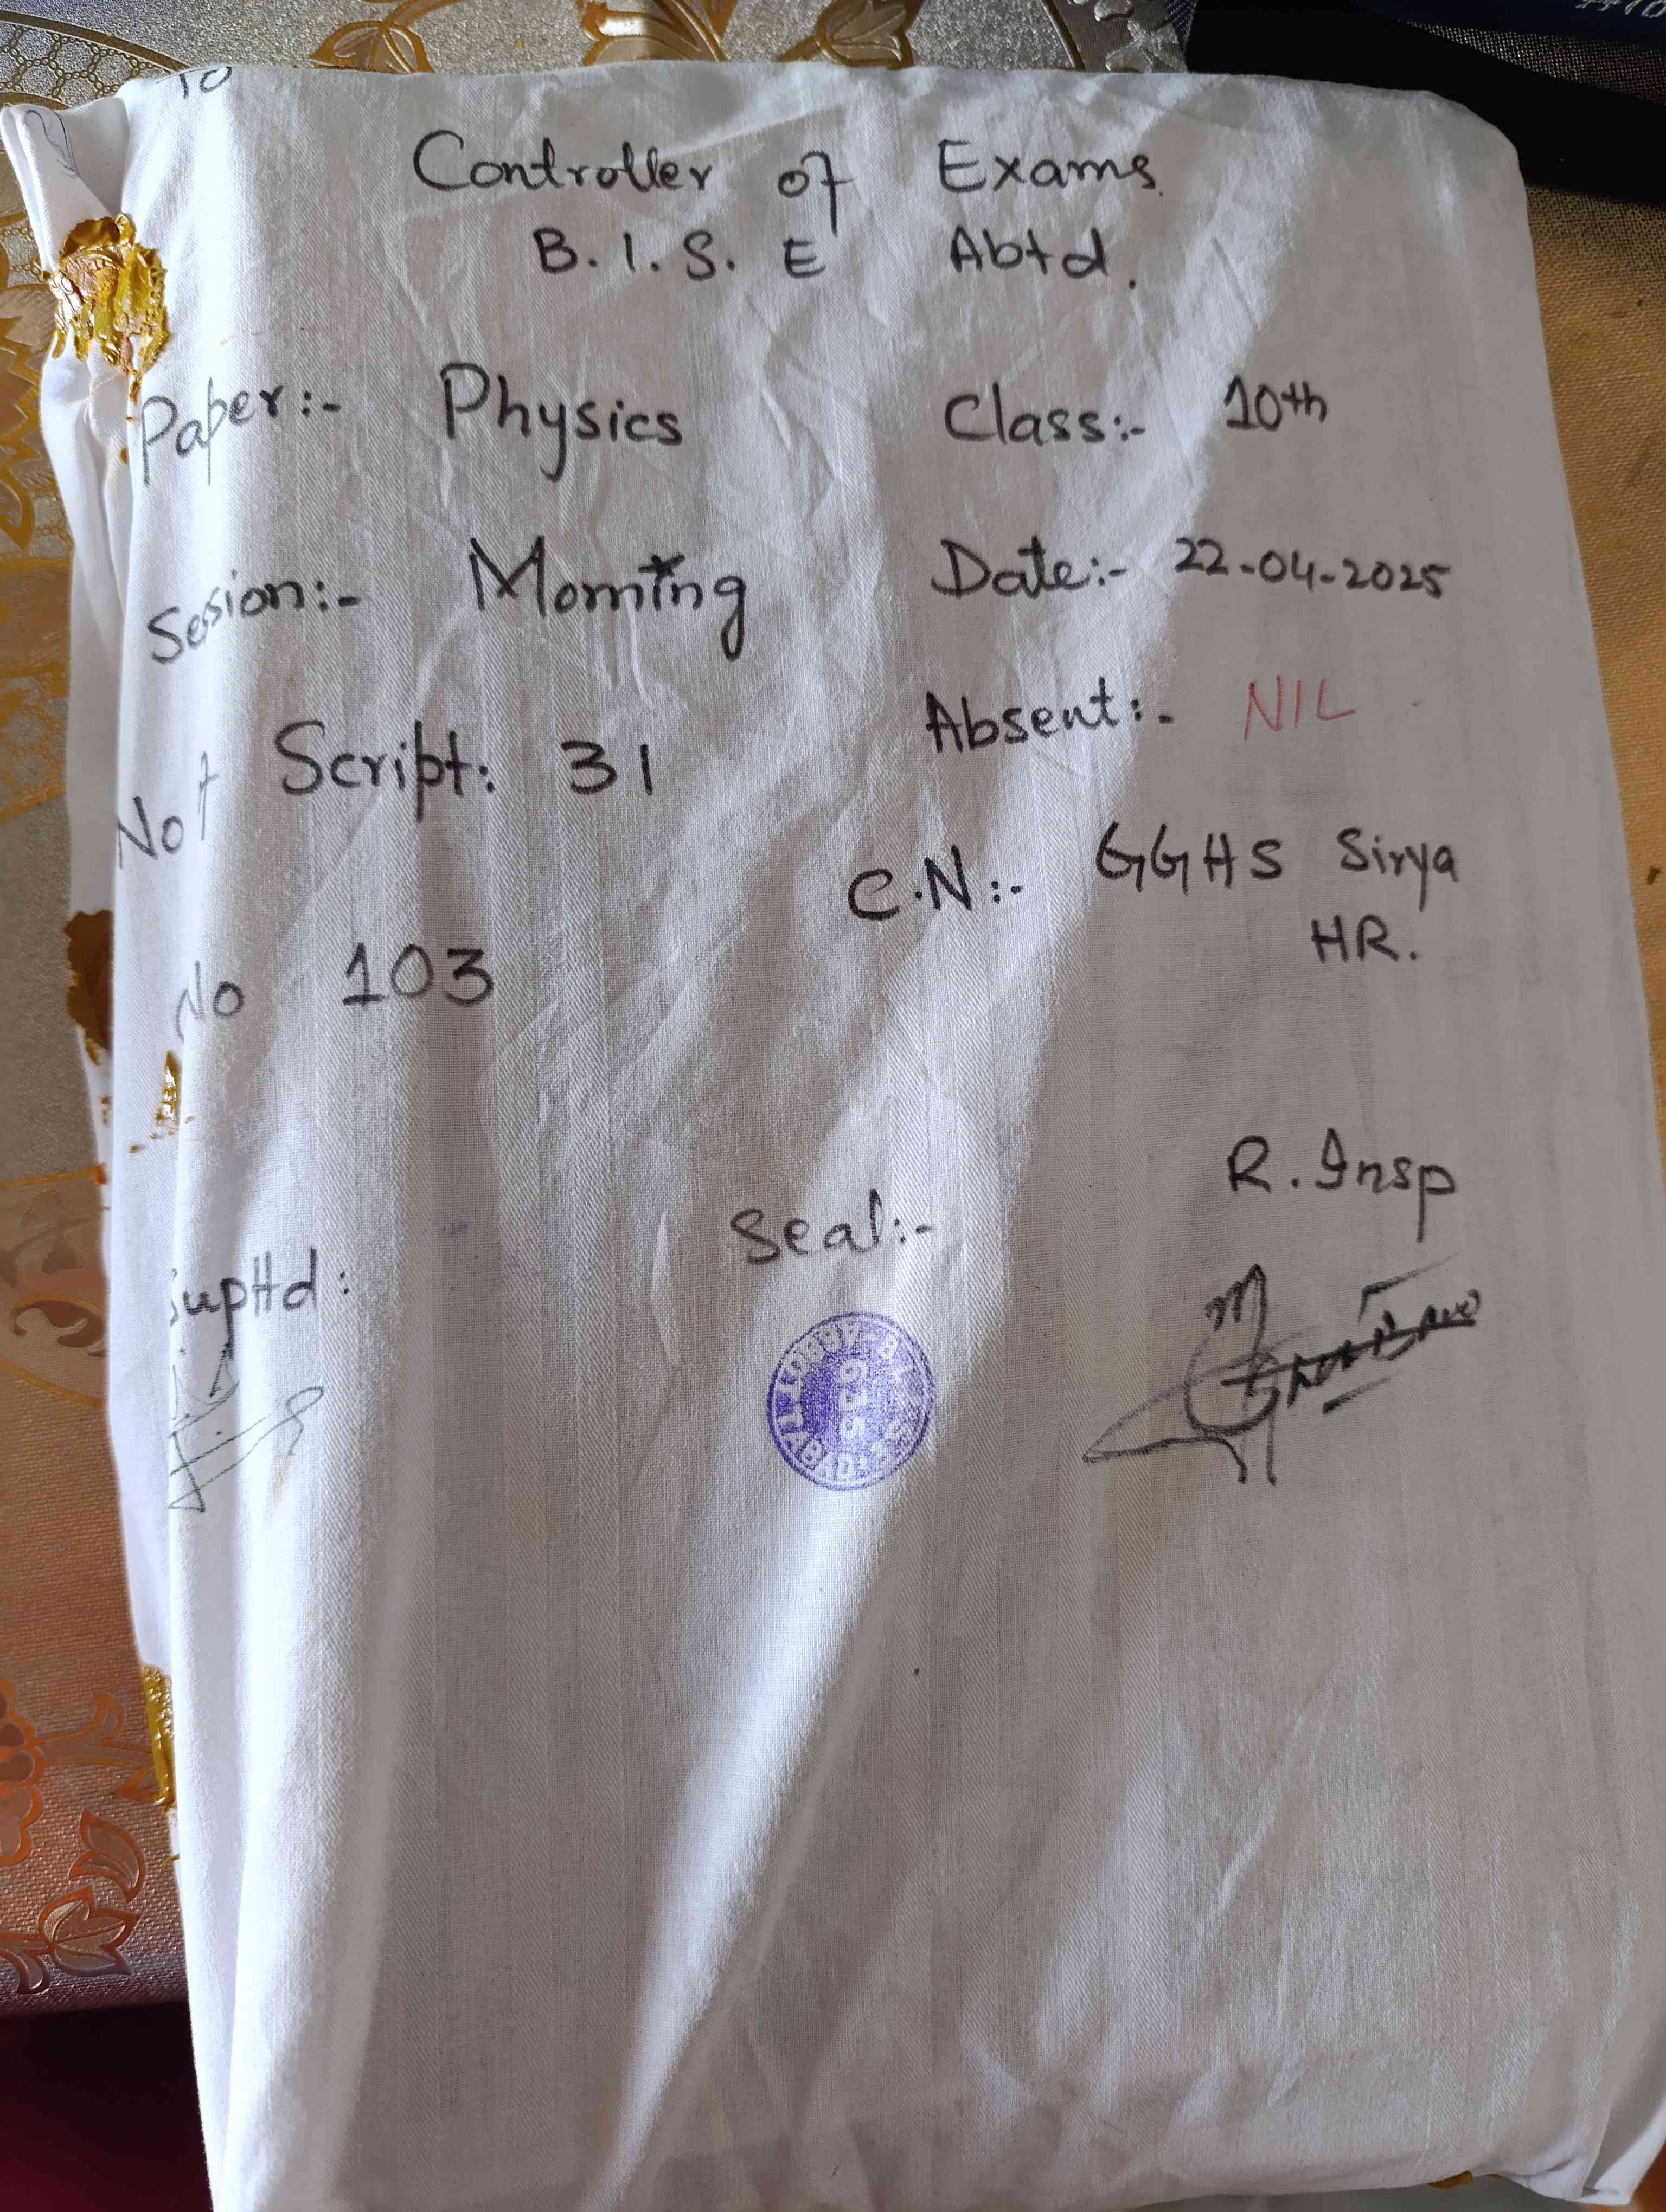 To
Controller of Exams.
B.I.S.E Abtd.
Paper:- Physics Class:- 10th
Session:- Morning Date:- 22-04-2025
Absent:- NIL
No f Script: 31
C.N:- GGHS Sirya
HR.
No 103
R. Insp
Seal:-
SupHd: